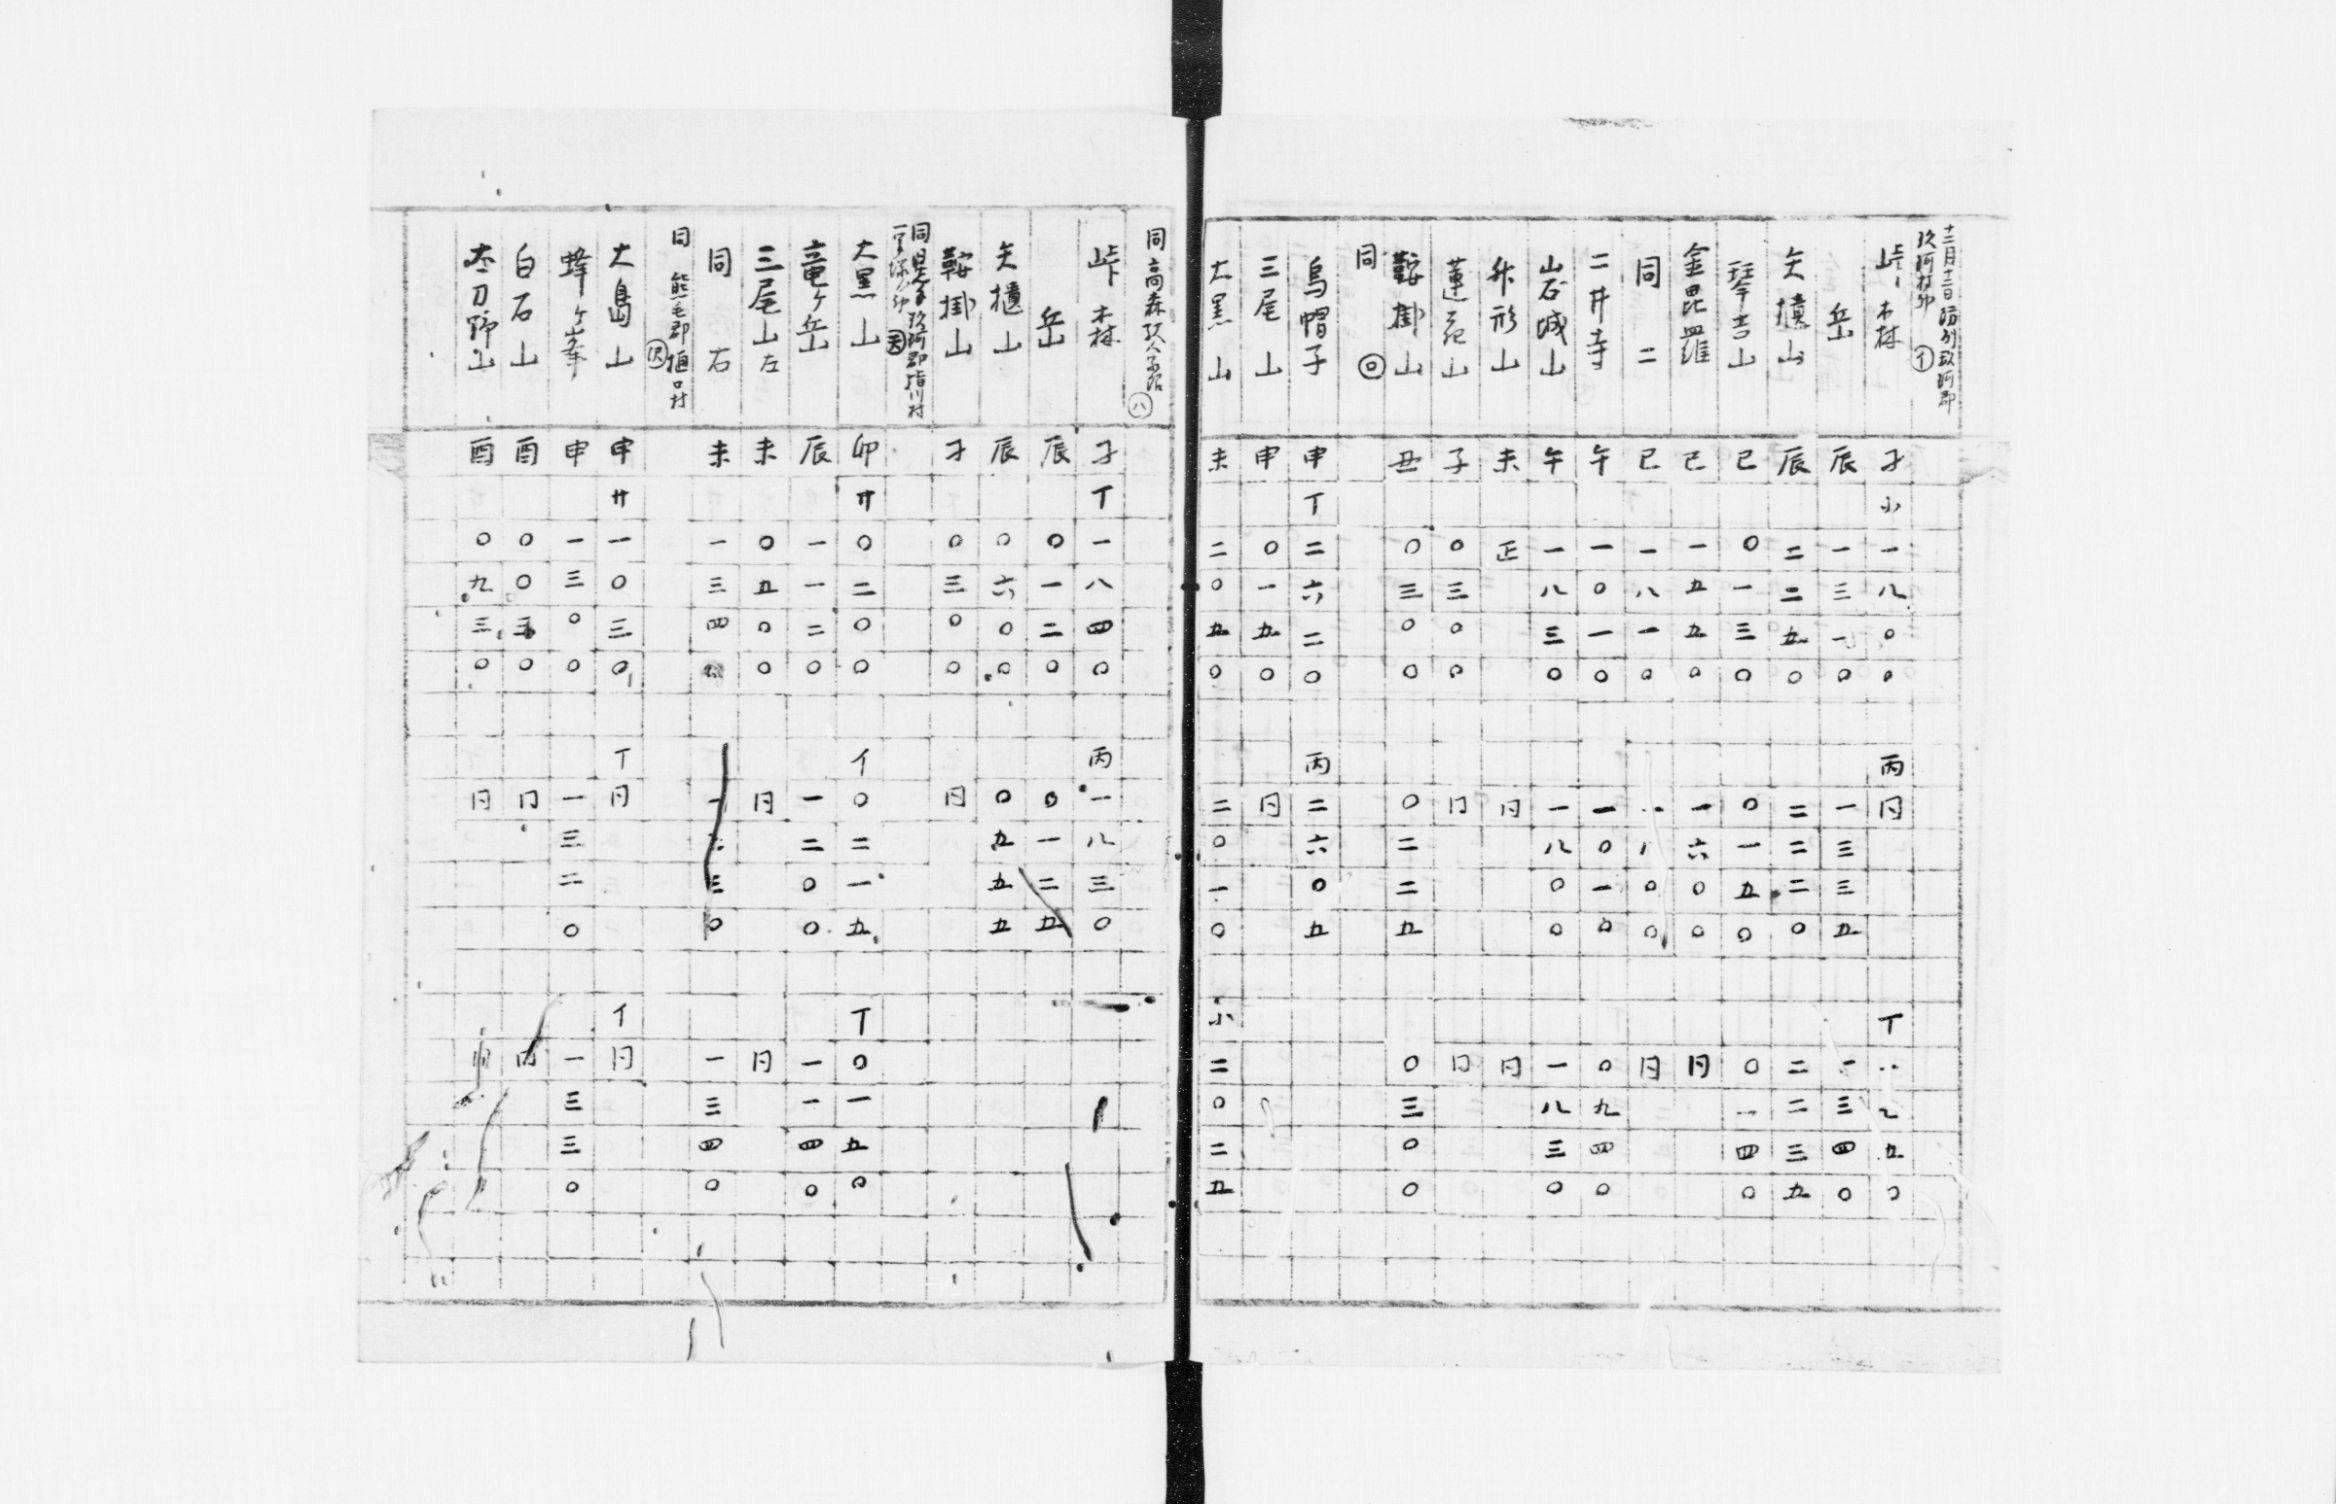 十二月十三日防州玖珂郡
玖珂村印 イ
峠ノ森 子 小一八〇〇 丙同 丁
岳 辰 一三一〇 一三三五 一三四〇
矢櫃山 辰 二二五〇 二二二〇 二二三五
琴吉山 巳 〇一三〇 〇一五〇 〇一四〇
金毘羅 巳 一五五〇 一六〇〇 同
同二 巳 一八一〇 同
二井寺 午 一〇一〇 一〇一〇 〇九四〇
岩城山 午 一八三〇 一八〇〇 一八三〇
升形山 未 正 同 同
蓮花山 子 〇三〇 同 同
鞍掛山 丑 〇三〇〇 〇二二五 〇三〇〇
同 ロ
烏帽子 申 丁二六二〇 丙二六〇五
三尾山 申 〇一五〇 同
大黒山 未 二〇五〇 二〇一〇 小二〇二五
同高森 ハ
峠森 子 丁一八四〇 丙一八三〇
岳 辰 〇一二〇 〇一二五
矢櫃山 辰 〇六〇〇 〇五五五
鞍掛山 子 〇三〇〇 同
同 玖珂郡
大黒山 卯 サ〇二〇〇 イ〇二一五 丁〇一五〇
竜ヶ岳 辰 一一二〇 一二〇〇 一一四〇
三尾山左 未 〇五〇〇 同 同
同右 未 一三四 三〇 一三四〇
同 熊毛郡樋口村
大島山 申 サ一〇三〇 丁同 イ同
蜂ヶ峯 申 一三〇〇 一三二〇 一三三〇
白石山 酉 〇〇三〇 同 同
太刀野山 酉 〇九三〇 同